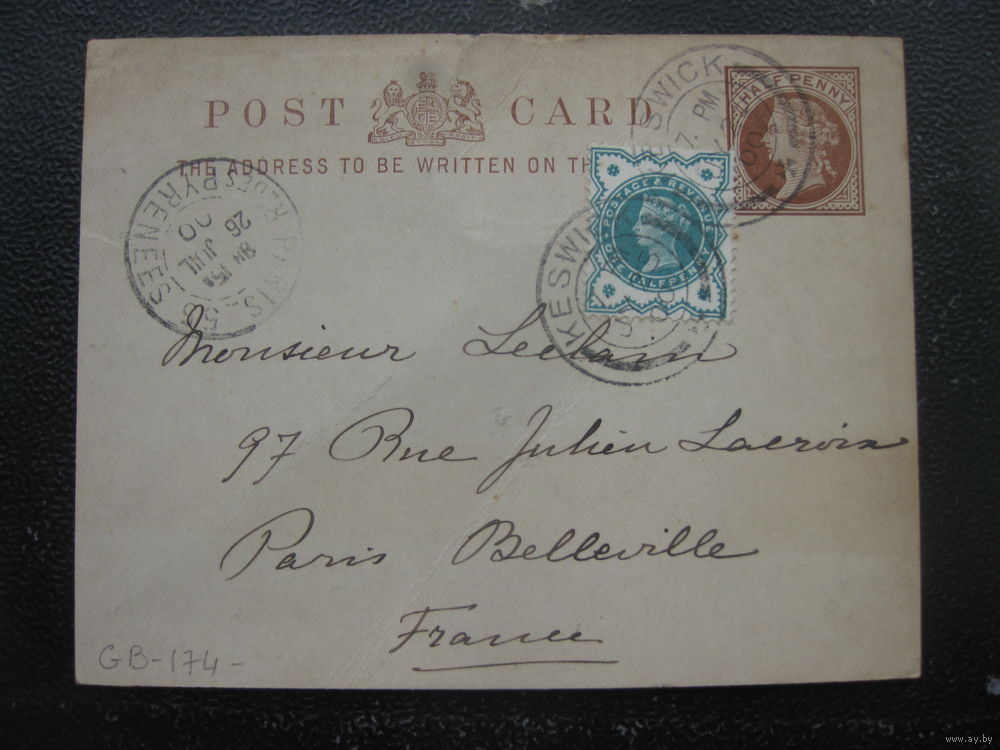 POST CARD
THE ADDRESS TO BE WRITTEN ON TH
HALFPENNY
POSTAGE & REVENUE
ONE HALFPENNY
KESWICK
7. PM
00
KESWI
PARIS
R. DES PYRENEES
26
JUIL
00
Monsieur
97 Rue Julien Lacroix
Paris Belleville
France
GB-174-
www.ay.by